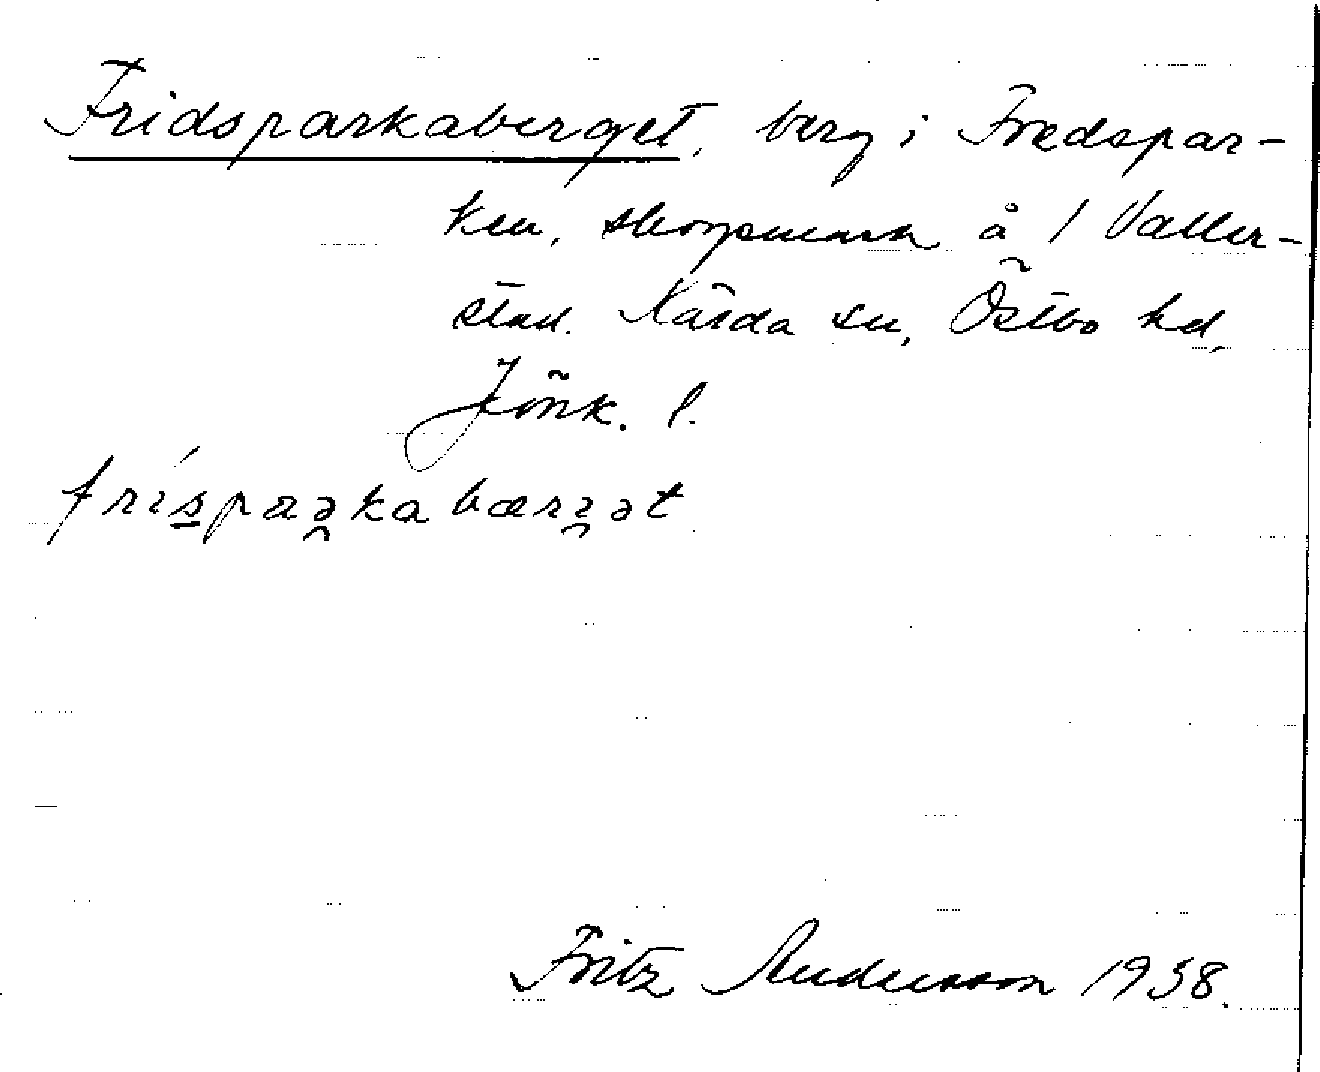 Fridsparkaberget, berg i Fredspar-
ken, skogsmark å 1 Valler-
stad. Kärda sn, Östbo hd,
Jönk. l.
fríspaə̯kabærɪ̯ət
Fritz Andersson 1938.